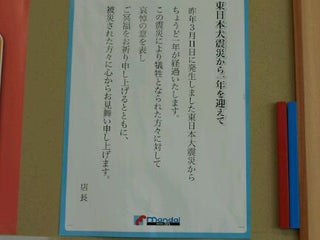 東日本大震災から一年を迎えて
昨年3月11日に発生しました東日本大震災から
ちょうど一年が経過いたします。
この震災により犠牲となられた方々に対して
哀悼の意を表し
ご冥福をお祈り申し上げるとともに、
被災された方々に心からお見舞い申し上げます。
店長
mandai